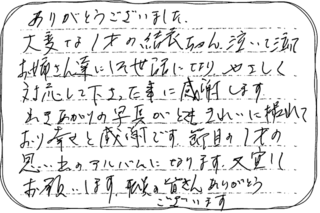 ありがとうございました。
大変な1才の結衣ちゃん、泣いて泣いて
お姉さん達にお世話になり やさしく
対応して下さった事に感謝します
わきあがりの写真がとてもきれいに撮れて
おり幸せと感謝です。節目の1才の
思い出のアルバムになります。又宜しく
お願いします。皆さん ありがとう
ございます